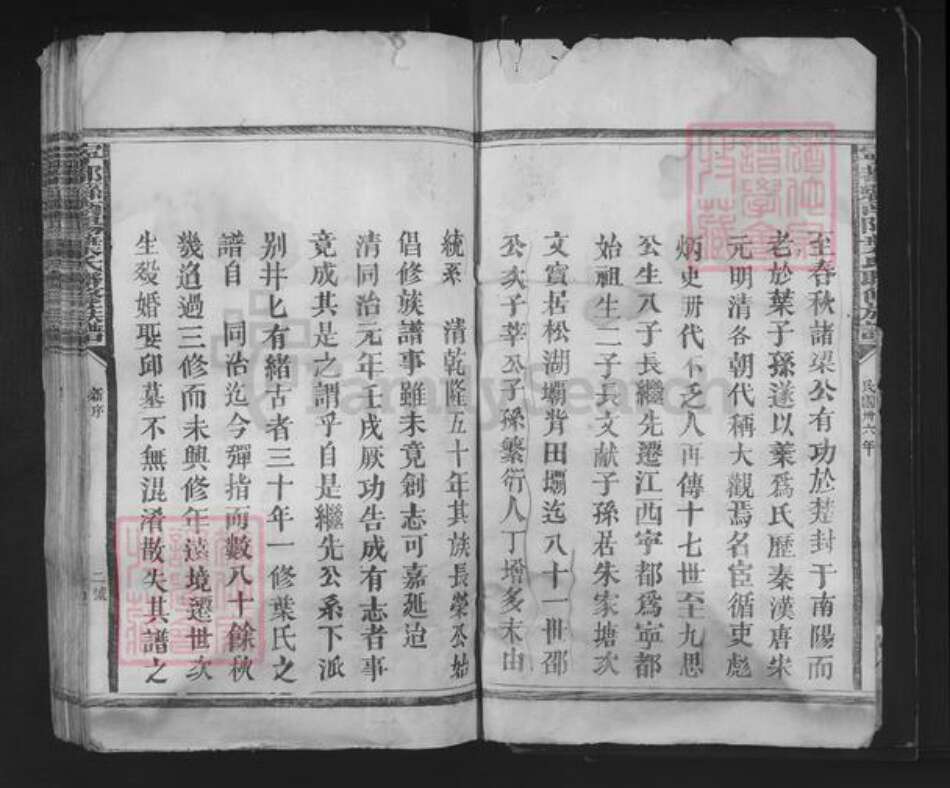 至春秋諸梁公有功於楚封于南陽而
老於葉子孫遂以葉爲氏歷秦漢唐宋
元明清各朝代稱大觀焉名宦循吏彪
炳史冊代不乏人再傳十七世至九思
公生八子長繼先遷江西寧都爲寧都
始祖生二子長文献子孫居朱家塘次
文寶居松湖壩背田壩迄八十一世邵
公次子莘公子孫繁衍人丁增多未由
統系 清乾隆五十年其族長榮丞始
倡修族譜事雖未竟創志可嘉延迨
清同治元年壬戌厥功告成有志者事
竟成其是之謂乎自是繼先公系下派
别井匕有緒古者三十年一修葉氏之
譜自 同治迄今彈指而數八十餘秋
幾迨過三修而未興修年遠境遷世次
生殁婚娶邱墓不無混淆散失其譜之
民國卅六年
新序
二號
FamilySearch